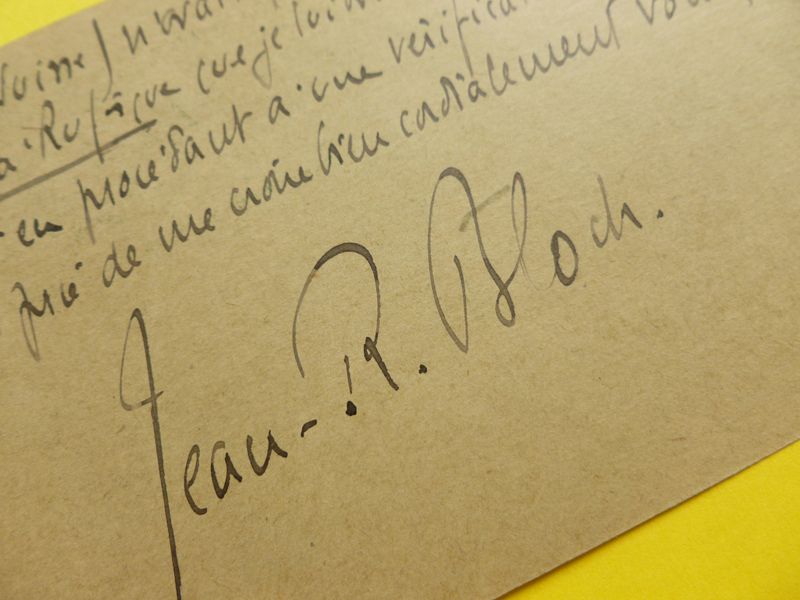 Suisse
à Rustique que je suis
en procédant à une vérifica
prie de me croire bien cordialement vôt
Jean-R. Bloch.